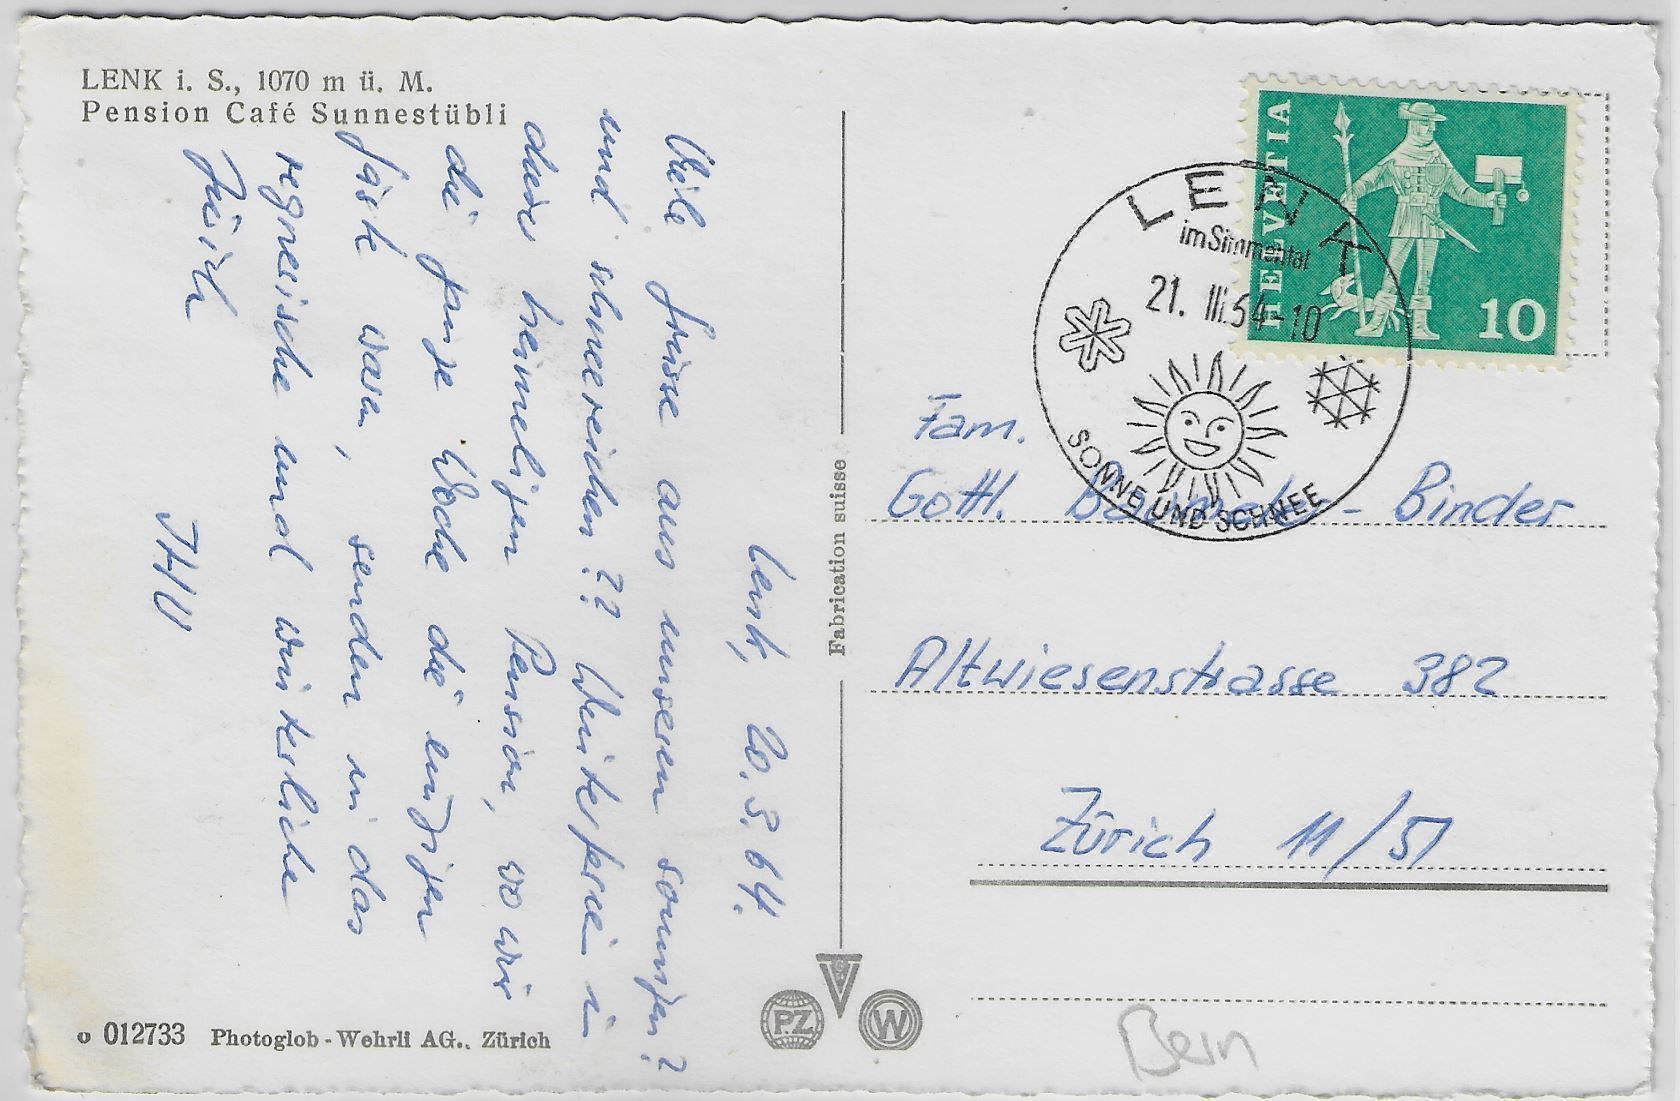 LENK i. S., 1070 m ü. M.
Pension Café Sunnestübli
Lenk, 20.3.64.
Viele Grüsse aus unserem sonnigen?
und schneereichen?? Winterferien in
dieser heimeligen Pension, wo wir
die ganze Woche die einzigen
Gäste waren, senden in das
regnerische und winterliche
Zürich
o 012733 Photoglob-Wehrli AG., Zürich
Fabrication suisse
PZ
W
HELVETIA
10
LENK
im Simmental
21. III. 64-10
SONNE UND SCHNEE
Fam.
Gottl. - Binder
Altwiesenstrasse 382
Zürich 11/51
Bern